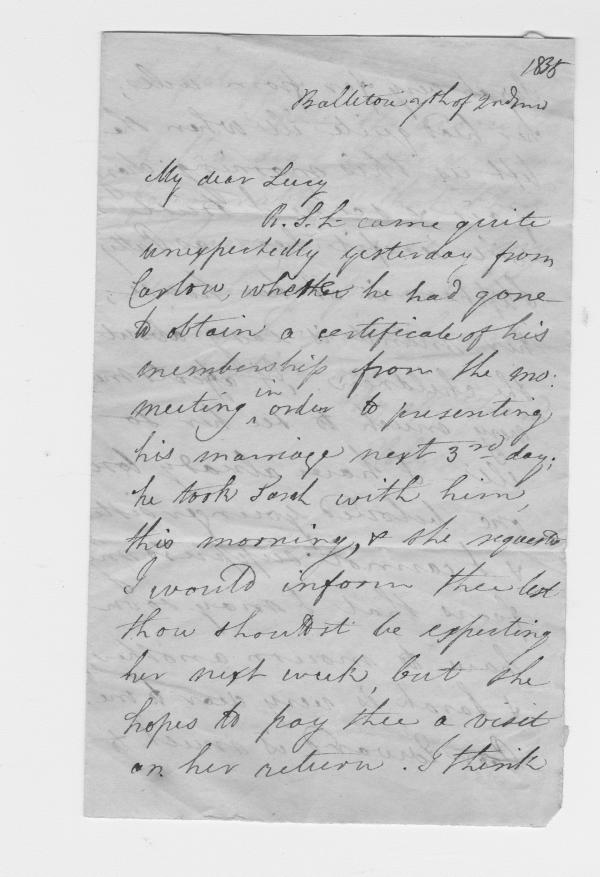 1838
Ballitore 7th of 2nd mo
My dear Lucy
R. S. L. came quite
unexpectedly yesterday from
Carlow, whether he had gone
to obtain a certificate of his
membership from the mo:
meeting in order to presenting
his marriage next 3rd day;
he took Sarah with him,
this morning, & she requests
I would inform thee lest
thou shouldst be expecting
her next week, but she
hopes to pay thee a visit
on her return. I think